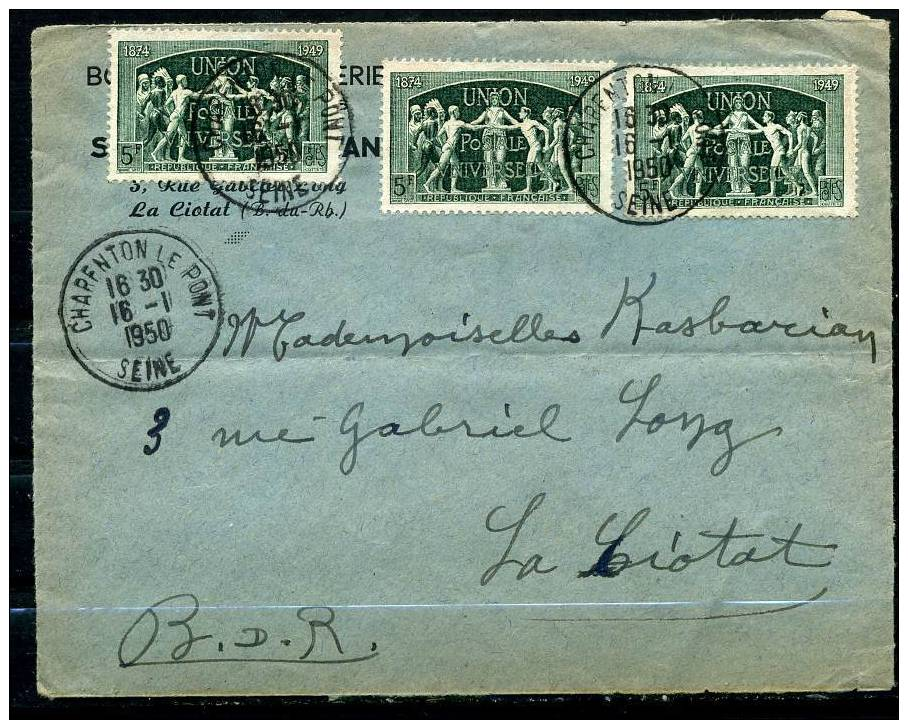 1874 1949
UNION
POSTALE
UNIVERSELLE
5F
REPUBLIQUE FRANÇAISE
1874 1949
UNION
POSTALE
UNIVERSELLE
5F
REPUBLIQUE FRANÇAISE
1874 1949
UNION
POSTALE
UNIVERSELLE
5F
REPUBLIQUE FRANÇAISE
PONT
1950
SEINE
CHARENTON
16 30
16 -1
1950
SEINE
BO ERIE
S AN
3, Rue Gabriel Long
La Ciotat (B.-du-Rh.)
CHARENTON LE PONT
16 30
16 -1
1950
SEINE
Mademoiselles Kasbarian
3 rue Gabriel Long
La Ciotat
B.D.R.